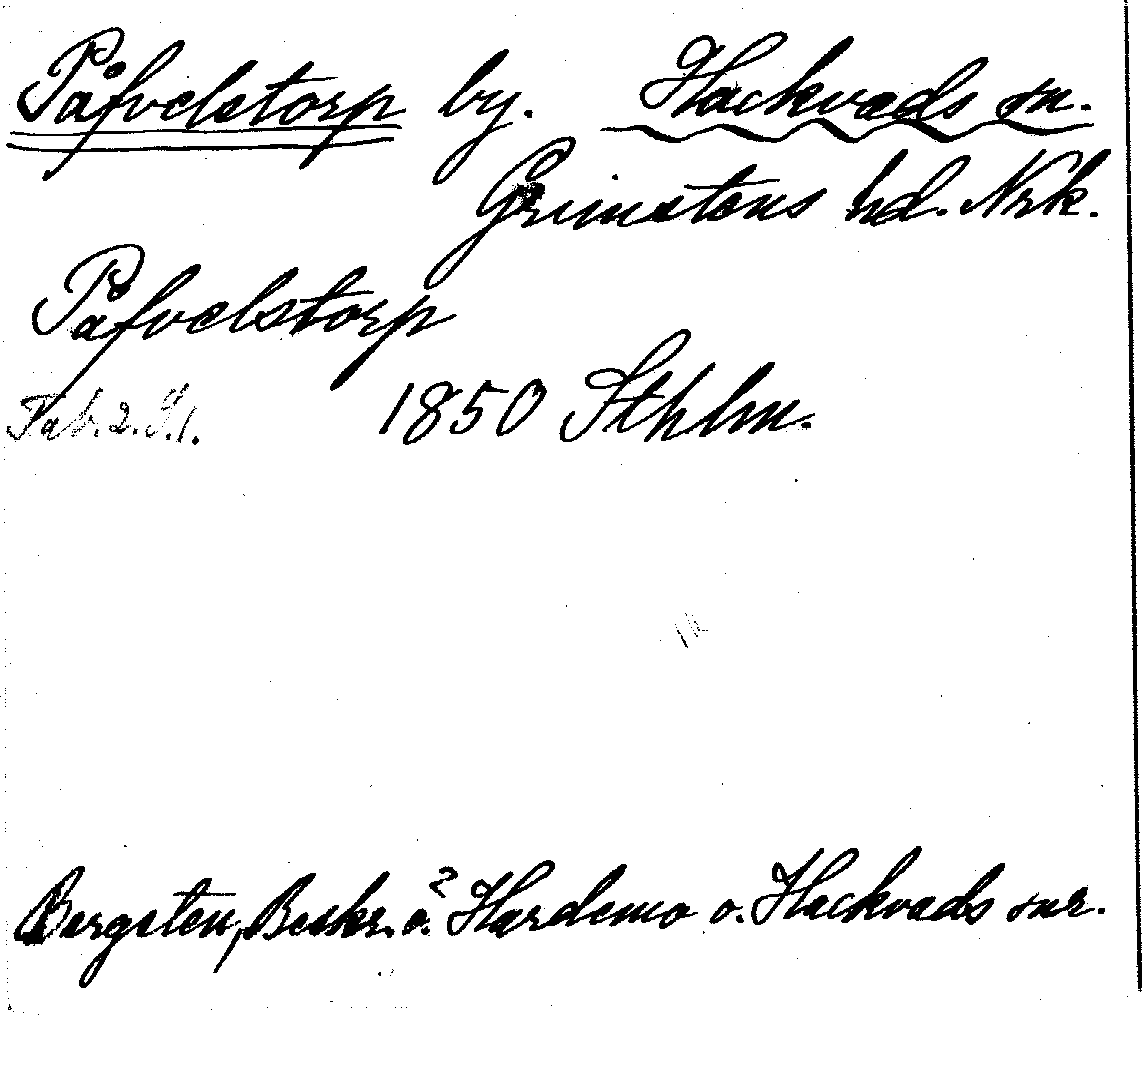 Påfvelstorp by. Hackvads sn.
Grimstens hd. Nrk.
Påfvelstorp
Tab. 2. I. 1. 1850 Sthlm.
Bergsten, Beskr. ö. Hardemo o. Hackvads snr.